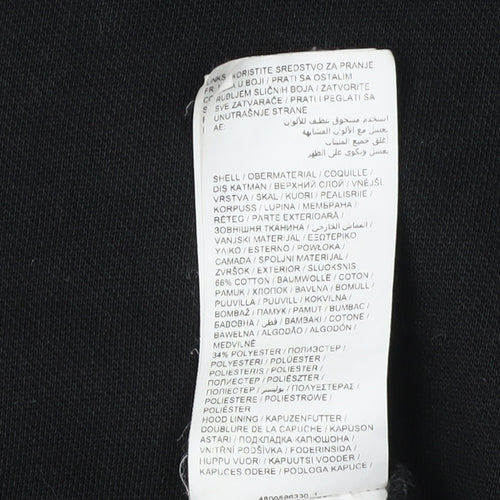 KORISTITE SREDSTVO ZA PRANJE
U BOJI / PRATI SA OSTALIM
RUBLJEM SLIČNIH BOJA / ZATVORITE
SVE ZATVARAČE / PRATI I PEGLATI SA
UNUTRAŠNJE STRANE
AE:
استخدم مسحوق تنظيف للألوان
يغسل مع الألوان المشابهة
أغلق جميع المثبتات
يغسل ويكوى على الظهر
SHELL / OBERMATERIAL / COQUILLE /
DIŞ KATMAN / ВЕРХНИЙ СЛОЙ / VNĚJŠÍ
VRSTVA / SKAL / KUORI / PEALISRIIE /
KORPUSS / LUPINA / МЕМБРАНА /
RÉTEG / PARTE EXTERIOARĂ /
ЗОВНІШНЯ ТКАНИНА / القماش الخارجي /
VANJSKI MATERIJAL / ΕΞΩΤΕΡΙΚΟ
ΥΛΙΚΟ / ESTERNO / POWŁOKA /
CAMADA / SPOLJNI MATERIJAL /
ZVRŠOK / EXTERIOR / SLUOKSNIS
66% COTTON / BAUMWOLLE / COTON /
PAMUK / ХЛОПОК / BAVLNA / BOMULL /
PUUVILLA / PUUVILL / KOKVILNA /
BOMBAŽ / ПАМУК / PAMUT / BUMBAC /
БАВОВНА / قطن / ΒΑΜΒΑΚΙ / COTONE /
BAWEŁNA / ALGODÃO / ALGODÓN /
MEDVILNĖ
34% POLYESTER / ПОЛИЭСТЕР /
POLYESTERI / POLÜESTER /
POLIESTERIS / POLIESTER /
ПОЛИЕСТЕР / POLIÉSZTER /
ПОЛІЕСТЕР / بوليستر / ΠΟΛΥΕΣΤΕΡΑΣ /
POLIESTERE / POLIESTROWE /
POLIÉSTER
HOOD LINING / KAPUZENFUTTER /
DOUBLURE DE LA CAPUCHE / KAPUŞON
ASTARI / ПОДКЛАДКА КАПЮШОНА /
VNITŘNÍ PODŠÍVKA / FODERINSIDA /
HUPPU VUORI / KAPUUTSI VOODER /
KAPUCES ODERE / PODLOGA KAPUCE /